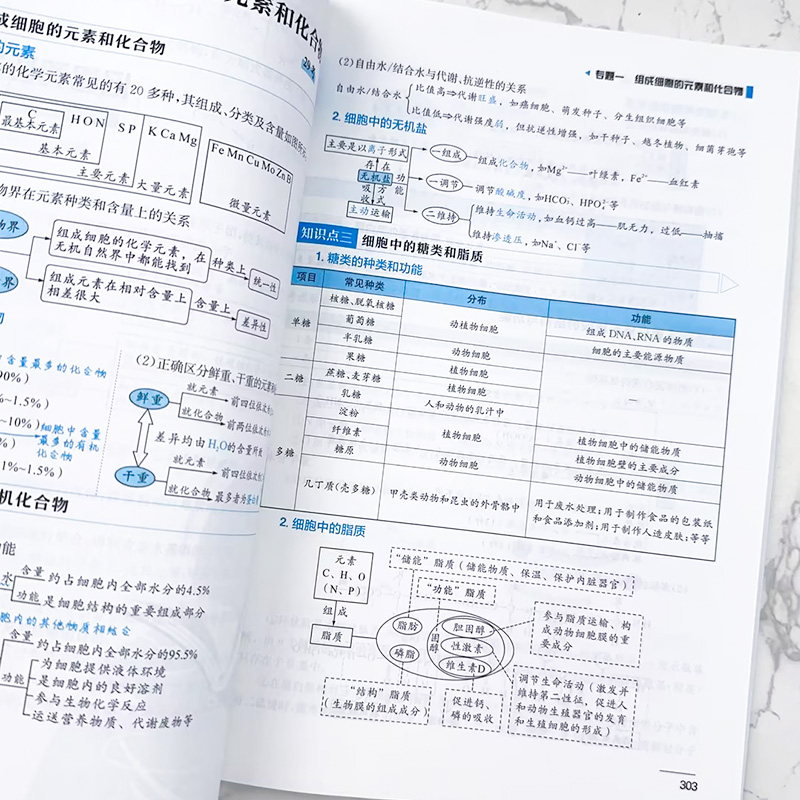 元素和化合
成细胞的元素和化合物
的元素
的化学元素常见的有 20 多种，其组成、分类及含量如图所
C
最基本元素
H O N
S P
K Ca Mg
Fe Mn Cu Mo Zn B
基本元素
主要元素
大量元素
微量元素
物界在元素种类和含量上的关系
物界
组成细胞的化学元素，在
无机自然界中都能找到
种类上
统一性
界
组成元素在相对含量上
相差很大
含量上
差异性
含量最多的化合物
90%)
%~1.5%)
~10%)
细胞中含量
最多的有机
化合物
%)
1%~1.5%)
(2)正确区分鲜重、干重的元素
鲜重
就元素
前四位依次
就化合物
前两位依次
差异均由H₂O的含量所
干重
就元素
前四位依次
就化合物
最多者为蛋白
机化合物
功能
水
含量
约占细胞内全部水分的4.5%
功能
是细胞结构的重要组成部分
胞内的其他物质相结合
含量
约占细胞内全部水分的95.5%
功能
为细胞提供液体环境
是细胞内的良好溶剂
参与生物化学反应
运送营养物质、代谢废物等
专题一 组成细胞的元素和化合物
(2)自由水/结合水与代谢、抗逆性的关系
自由水/结合水
比值高⇒代谢旺盛，如癌细胞、萌发种子、分生组织细胞等
比值低⇒代谢强度弱，但抗逆性增强，如干种子、越冬植物、细菌芽孢等
2. 细胞中的无机盐
主要是以离子形式
存在
无机盐
功能
吸收
方式
主动运输
一组成
组成化合物，如Mg²⁺——叶绿素，Fe²⁺——血红素
一调节
调节酸碱度，如HCO₃⁻、HPO₄²⁻等
二维持
维持生命活动，如血钙过高——肌无力，过低——抽搐
维持渗透压，如Na⁺、Cl⁻等
知识点三 细胞中的糖类和脂质
1. 糖类的种类和功能
项目 常见种类 分布 功能
单糖
核糖、脱氧核糖 动植物细胞 组成 DNA、RNA 的物质
葡萄糖 细胞的主要能源物质
半乳糖 动物细胞
果糖 植物细胞
二糖
蔗糖、麦芽糖 植物细胞 —
乳糖 人和动物的乳汁中
多糖
淀粉 植物细胞 植物细胞中的储能物质
纤维素 植物细胞壁的主要成分
糖原 动物细胞 动物细胞中的储能物质
几丁质(壳多糖) 甲壳类动物和昆虫的外骨骼中
用于废水处理；用于制作食品的包装纸
和食品添加剂；用于制作人造皮肤；等等
2. 细胞中的脂质
元素
C、H、O
(N、P)
组成
脂质
“储能”脂质(储能物质、保温、保护内脏器官)
“功能”脂质
脂肪
磷脂
固醇
胆固醇
性激素
维生素D
参与脂质运输、构
成动物细胞膜的重
要成分
调节生命活动(激发并
维持第二性征，促进人
和动物生殖器官的发育
和生殖细胞的形成)
“结构”脂质
(生物膜的组成成分)
促进钙、
磷的吸收
303